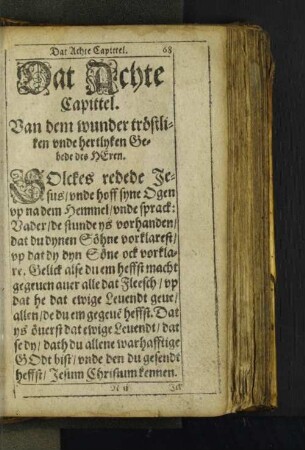 Dat Achte Capittel. 68
Dat Achte
Capittel.
Van dem wunder tröstli-
ken vnde hertlyken Ge-
bede des HEren.
SOlckes redede Je-
sus/ vnde hoff syne Ogen
vp na dem Hemmel/ vnde sprack:
Vader/ de stunde ys vorhanden/
dat du dynen Söhne vorklarest/
vp dat dy dyn Söne ock vorkla-
re, Gelick alse du em heffst macht
gegeuen auer alle dat Fleesch/ vp
dat he dat ewige Leuendt geue/
allen/ de du em gegeuē heffst. Dat
ys öuerst dat ewige Leuendt/ dat
se dy/ dath du allene warhafftige
GOdt bist/ vnde den du gesendt
heffst/ Jesum Christum kennen.